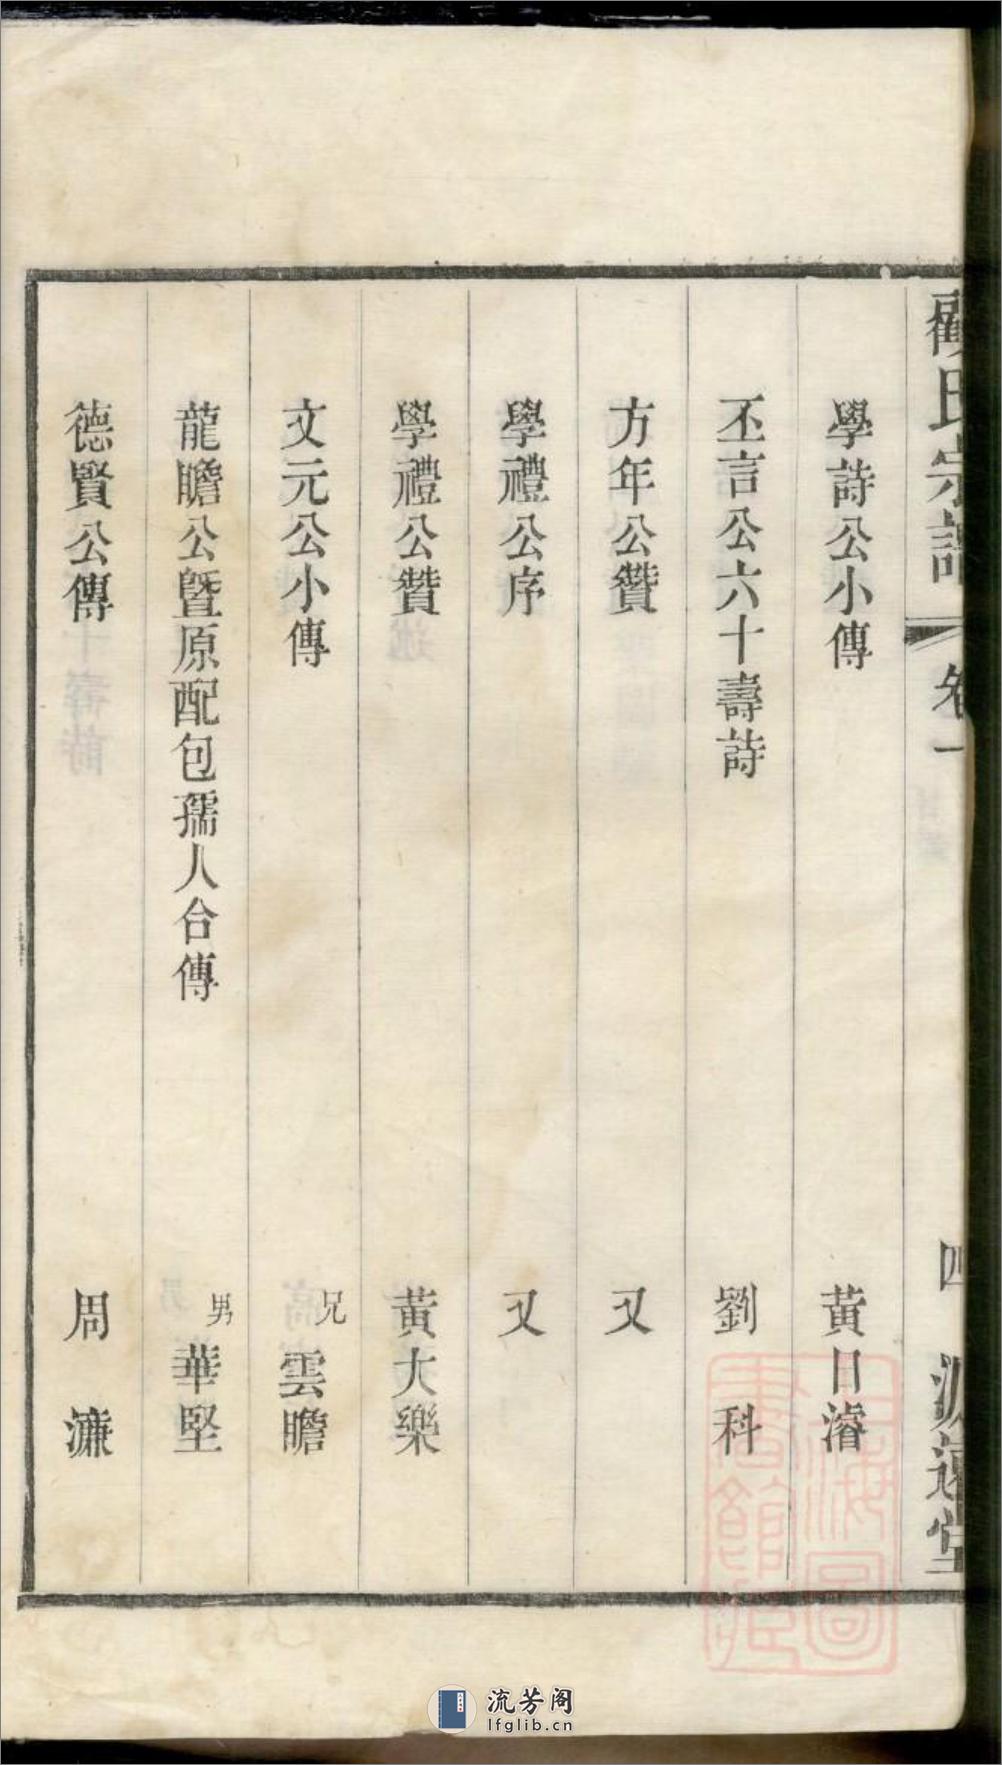 顧氏宗譜 卷一 四 源遠堂
學詩公小傳 黃日濬
丕言公六十壽詩 劉科
方年公贊 又
學禮公序 又
學禮公贊 黃大樂
文元公小傳 兄雲瞻
龍瞻公暨原配包孺人合傳 男華堅
德賢公傳 周濂
上海圖書館藏
流芳阁
lfglib.cn